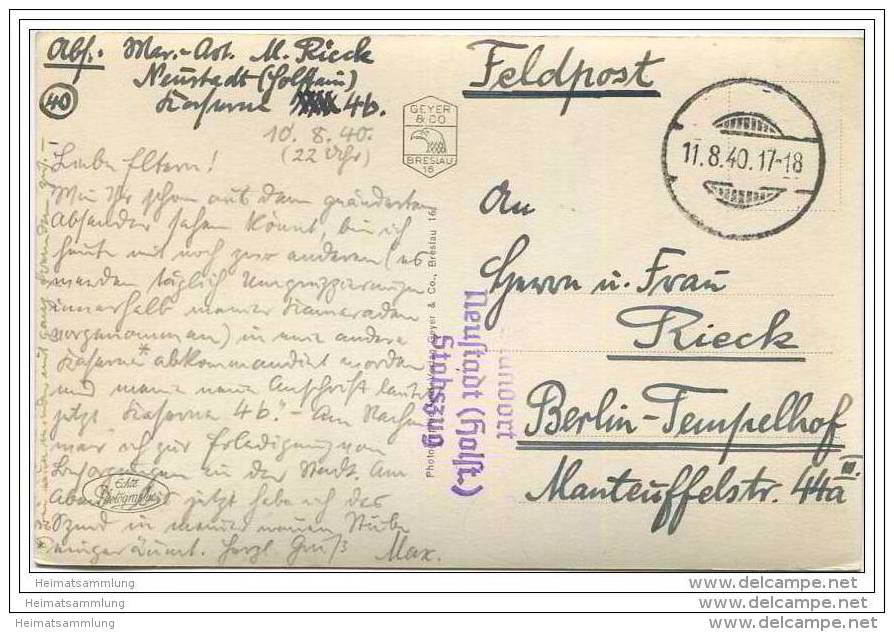 Abs.: Mar.-Art. M. Rieck
Neustadt (Holstein)
Kaserne 4b.
40
10.8.40.
(22 Uhr)
Liebe Eltern!
Wie Ihr schon aus dem geänderten
Absender sehen könnt, bin ich
heute mit noch zwei anderen (es
werden täglich Umgruppierungen
innerhalb meiner Kameraden
vorgenommen) in eine andere
Kaserne* abkommandiert worden
und meine neue Anschrift lautet
jetzt "Kaserne 4b." - Am Nachm.
war ich zur Erledigung von
Besorgungen in der Stadt. Am
Abend jetzt habe ich das
Spind in meiner neuen Stube
eingeräumt. Herzl. Gruß Max.
GEYER
& CO
BRESLAU
16
Echte
Photographie
Geyer & Co., Breslau 16
Feldpost
11.8.40.17-18
An
Herrn u. Frau
Rieck
Berlin-Tempelhof
Manteuffelstr. 44a III.
Neustadt (Holst.)
Stabszug
Heimatsammlung
Heimatsammlung
Heimatsammlung
www.delcampe.net
www.delcampe.net
www.delcampe.net